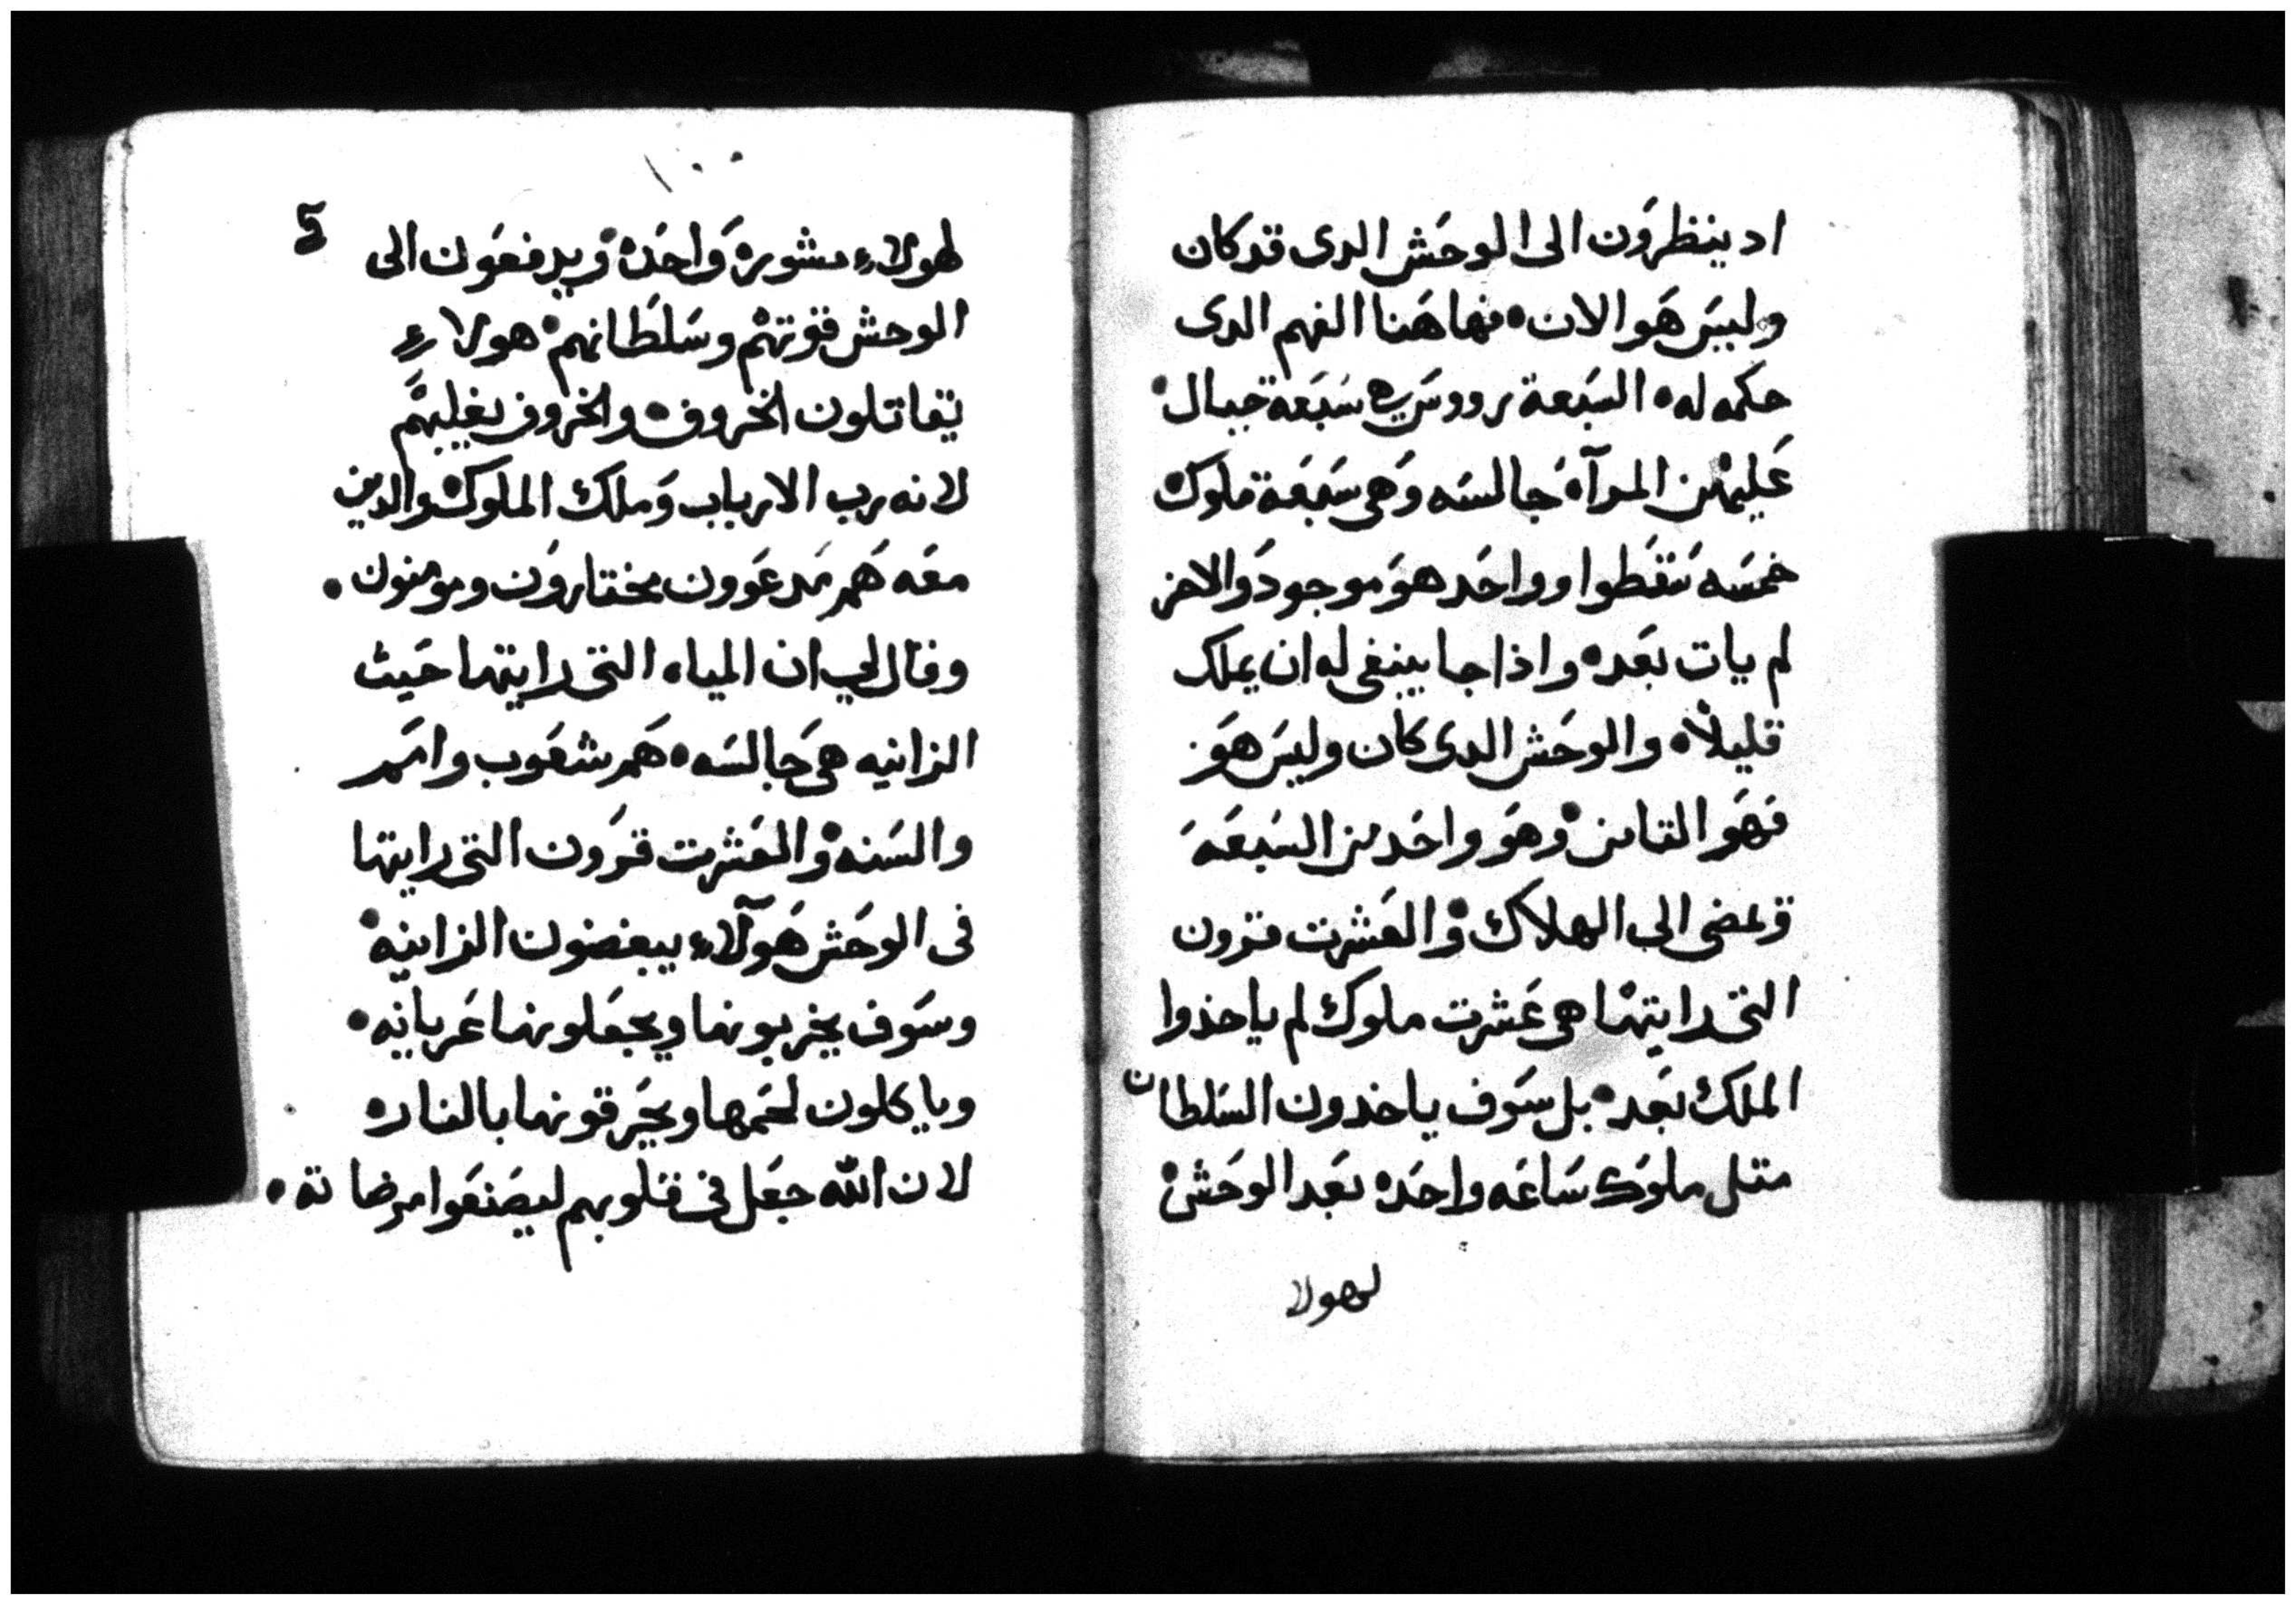 اد ينظرون الى الوحش الدى قد كان
وليس هو الان فهاهنا الفهم الدى
حكمه له السبعة رووس هي سبعة جبال
عليهن المرآه جالسه وهى سبعة ملوك
خمسه سقطوا وواحد هو موجود والاخر
لم يات بعد واذا جا ينبغى له ان يملك
قليلاً والوحش الدى كان وليس هو
فهو التامن وهو واحد من السبعه
ويمضى الى الهلاك والعشرت قرون
التى رايتها هى عشرت ملوك لم ياخذوا
الملك بعد بل سوف ياخدون السلطان
متل ملوك ساعه واحده بعد الوحش
لهولا
١٠٠
لهولاء مشوره واحده ويدفعون الى
الوحش قوتهم وسلطانهم هولاء
يتقاتلون الخروف والخروف يغلبهم
لانه رب الارباب وملك الملوك والدين
معه هم مدعوون مختارون ومومنون
وقال لي ان المياه التى رايتها حيث
الزانيه هى جالسه هم شعوب وامم
والسنه والعشرت قرون التى رايتها
فى الوحش هولآء يبغضون الزانيه
وسوف يخربونها ويجعلونها عريانه
وياكلون لحمها ويحرقونها بالنار
لان الله جعل فى قلوبهم ليصنعوا مرضاته